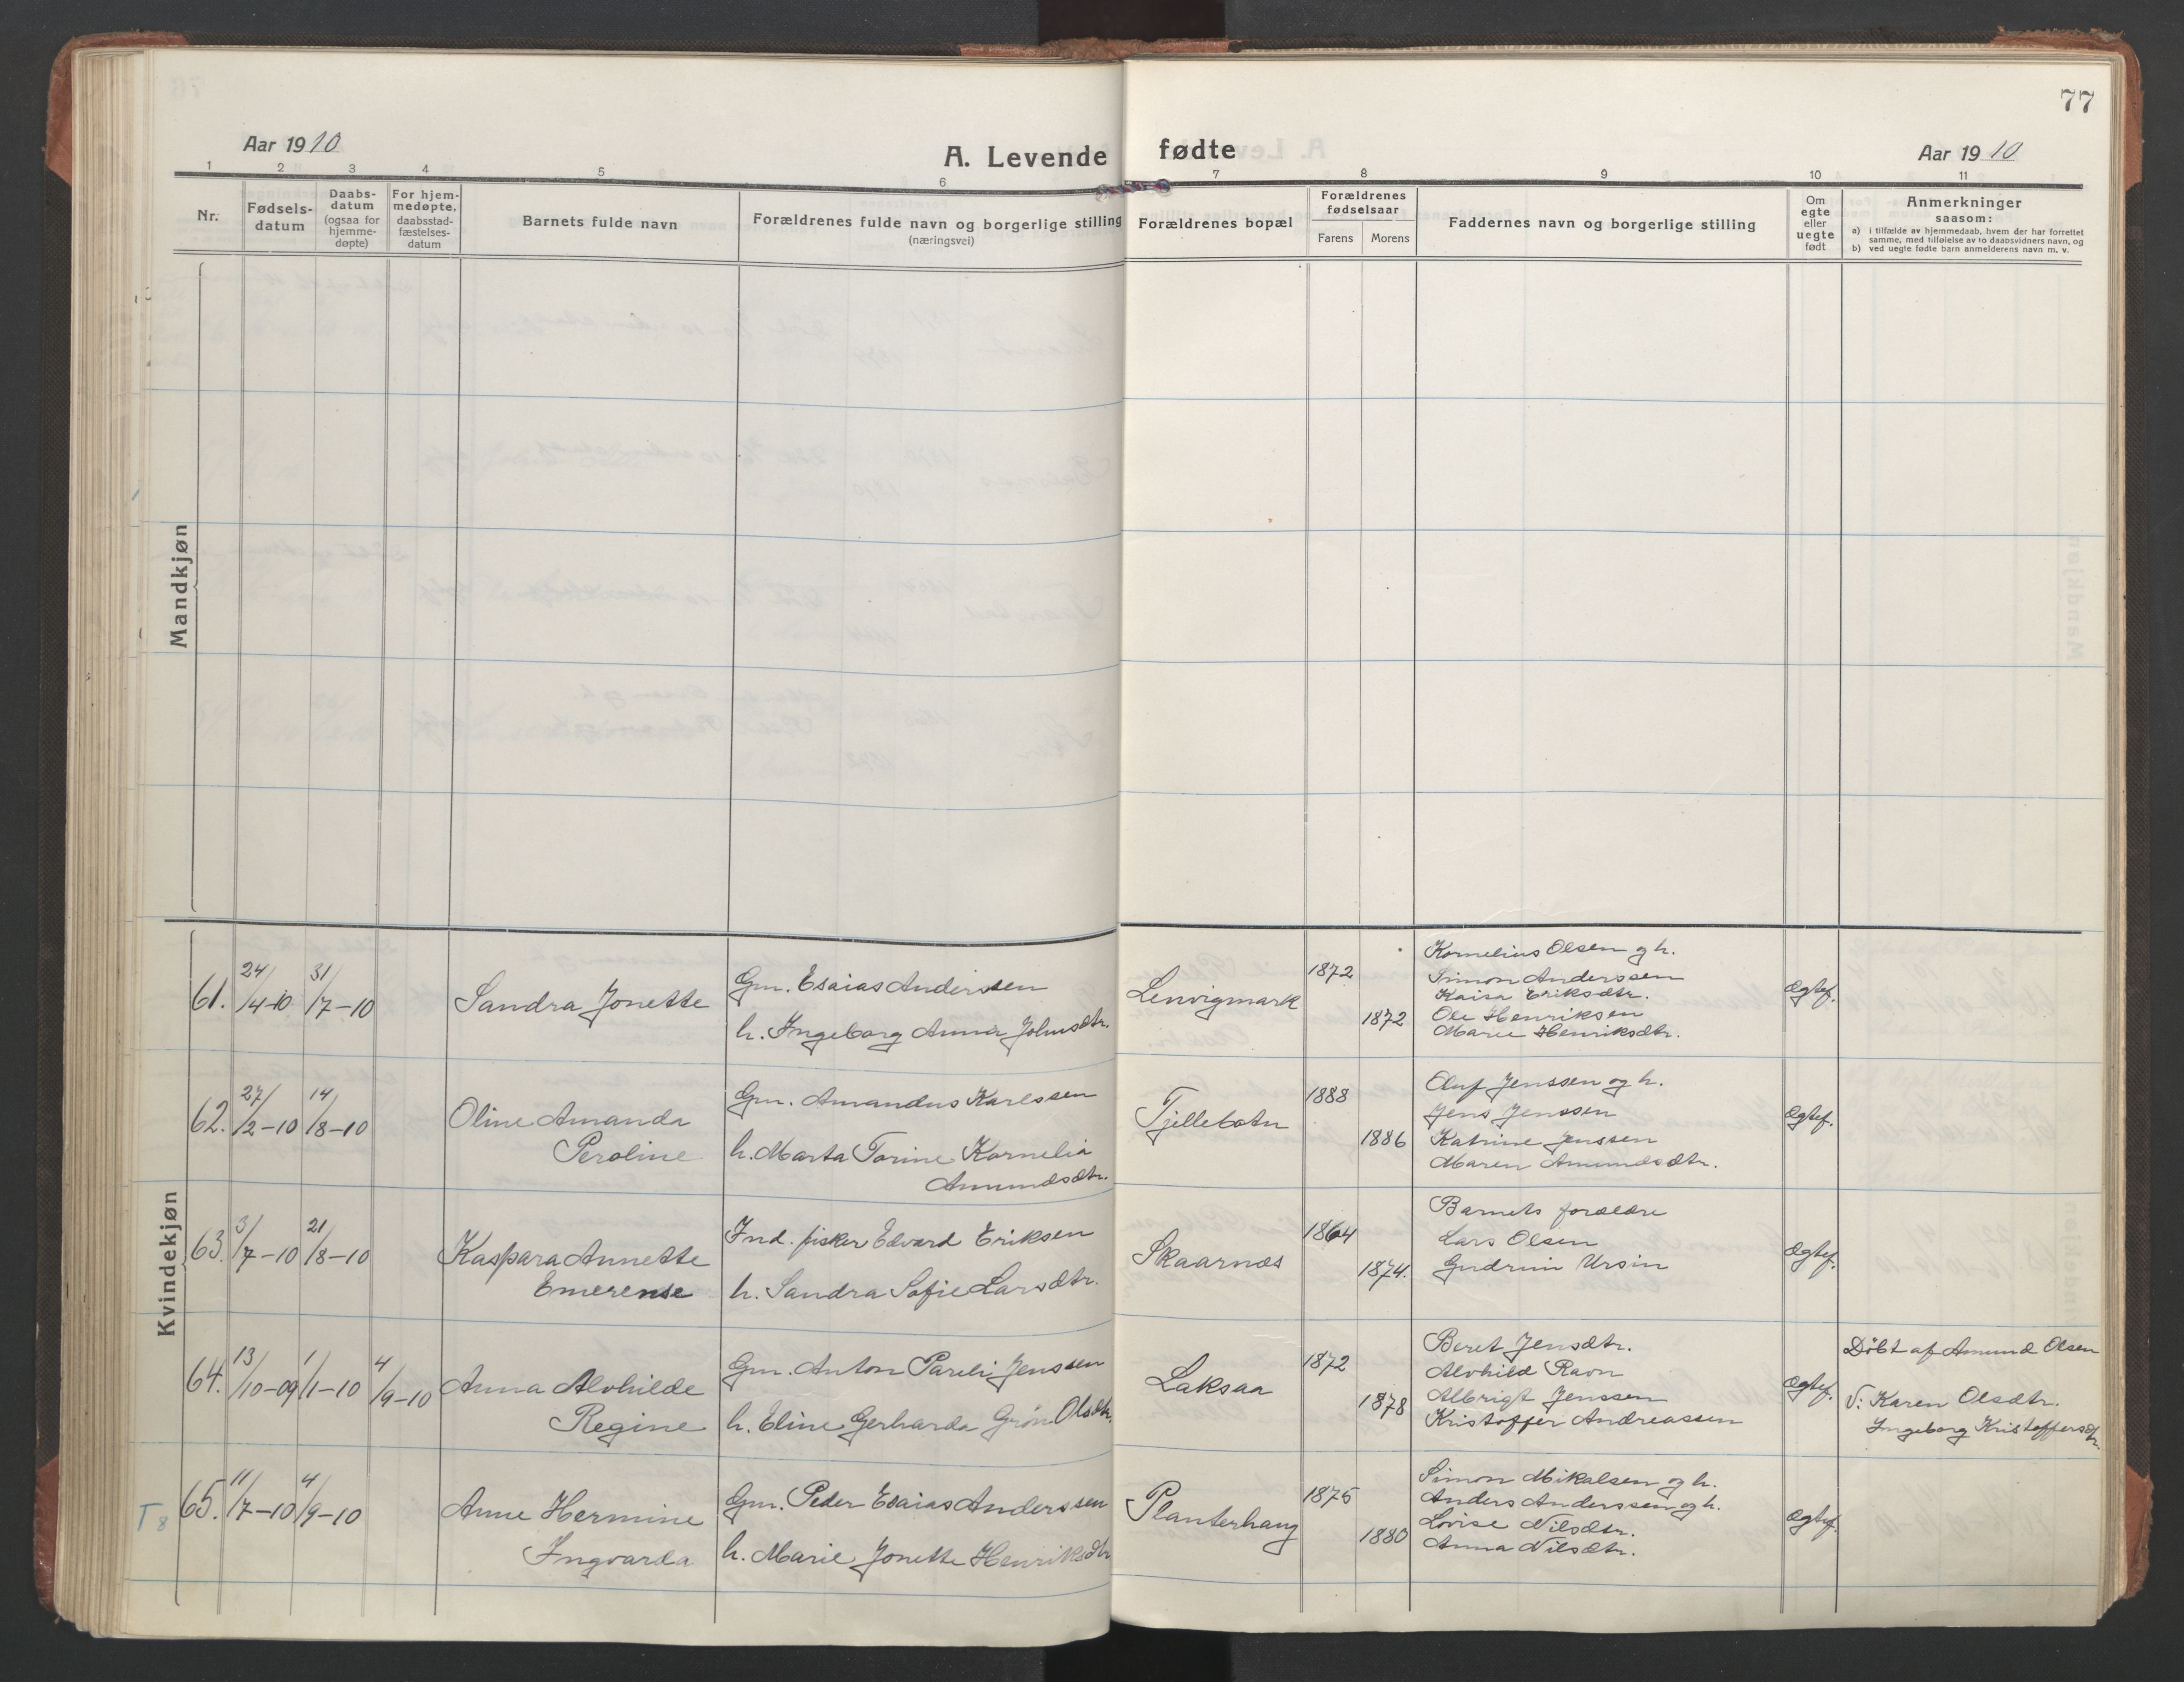 77
Aar 1910
A. Levende fødte
Aar 1910
1 2 3 4 5 6 7 8 9 10 11
Nr.
Fødsels-
datum
Daabs-
datum
(ogsaa for
hjemme-
døpte)
For hjem-
medøpte,
daabsstad-
fæstelses-
datum
Barnets fulde navn
Forældrenes fulde navn og borgerlige stilling
(næringsvei)
Forældrenes bopæl
Forældrenes
fødselsaar
Farens Morens
Faddernes navn og borgerlige stilling
Om
egte
eller
uegte
født
Anmerkninger
saasom:
a) i tilfælde av hjemmedaab, hvem der har forrettet
samme, med tilføielse av to daabsvidners navn, og
b) ved uegte fødte barn anmelderens navn m. v.
Mandkjøn
Kvindekjøn
61. 24/4-10 31/7-10
Sandra Jonette
Gm. Esaias Anderssen
h. Ingeborg Anna Johnsdtr.
Lenvigmark
1872
1872
Kornelius Olsen og h.
Simon Anderssen
Kaisa Eriksdtr.
Ole Henriksen
Marie Henriksdtr.
Ægtef.
62. 27/2-10 14/8-10
Oline Amanda
Peroline
Gm. Amandus Karlssen
h. Marta Torine Kornelia
Amundsdtr.
Tjellebotn
1888
1886
Oluf Jenssen og h.
Jens Jenssen
Katrine Jenssen
Maren Amundsdtr.
Ægtef.
63. 3/7-10 21/8-10
Kaspara Annette
Emerense
Ind. fisker Edvard Eriksen
h. Sandra Sofie Larsdtr.
Skaarnæs
1864
1874.
Barnets forældre
Lars Olsen
Gudrun Ursin
Ægtef.
64. 13/10-09 1/1-10 4/9-10
Anna Alvhilde
Regine
Gm. Anton Pareli Jenssen
h. Eline Gerharda Grøn Olsdtr.
Laksaa
1872
1878
Beret Jensdtr.
Alvhild Ravn
Albrigt Jenssen
Kristoffer Andreassen
Ægtef.
Döbt af Amund Olsen
V: Karen Olsdtr.
Ingeborg Kristoffersdtr.
T 8
65. 11/7-10 4/9-10
Anne Hermine
Ingvarda
Gm. Peder Esaias Anderssen
h. Marie Jonette Henriksdtr
Planterhaug
1875
1880
Simon Mikalsen og h.
Anders Anderssen og h.
Lovise Nilsdtr.
Anna Nilsdtr.
Ægtef.